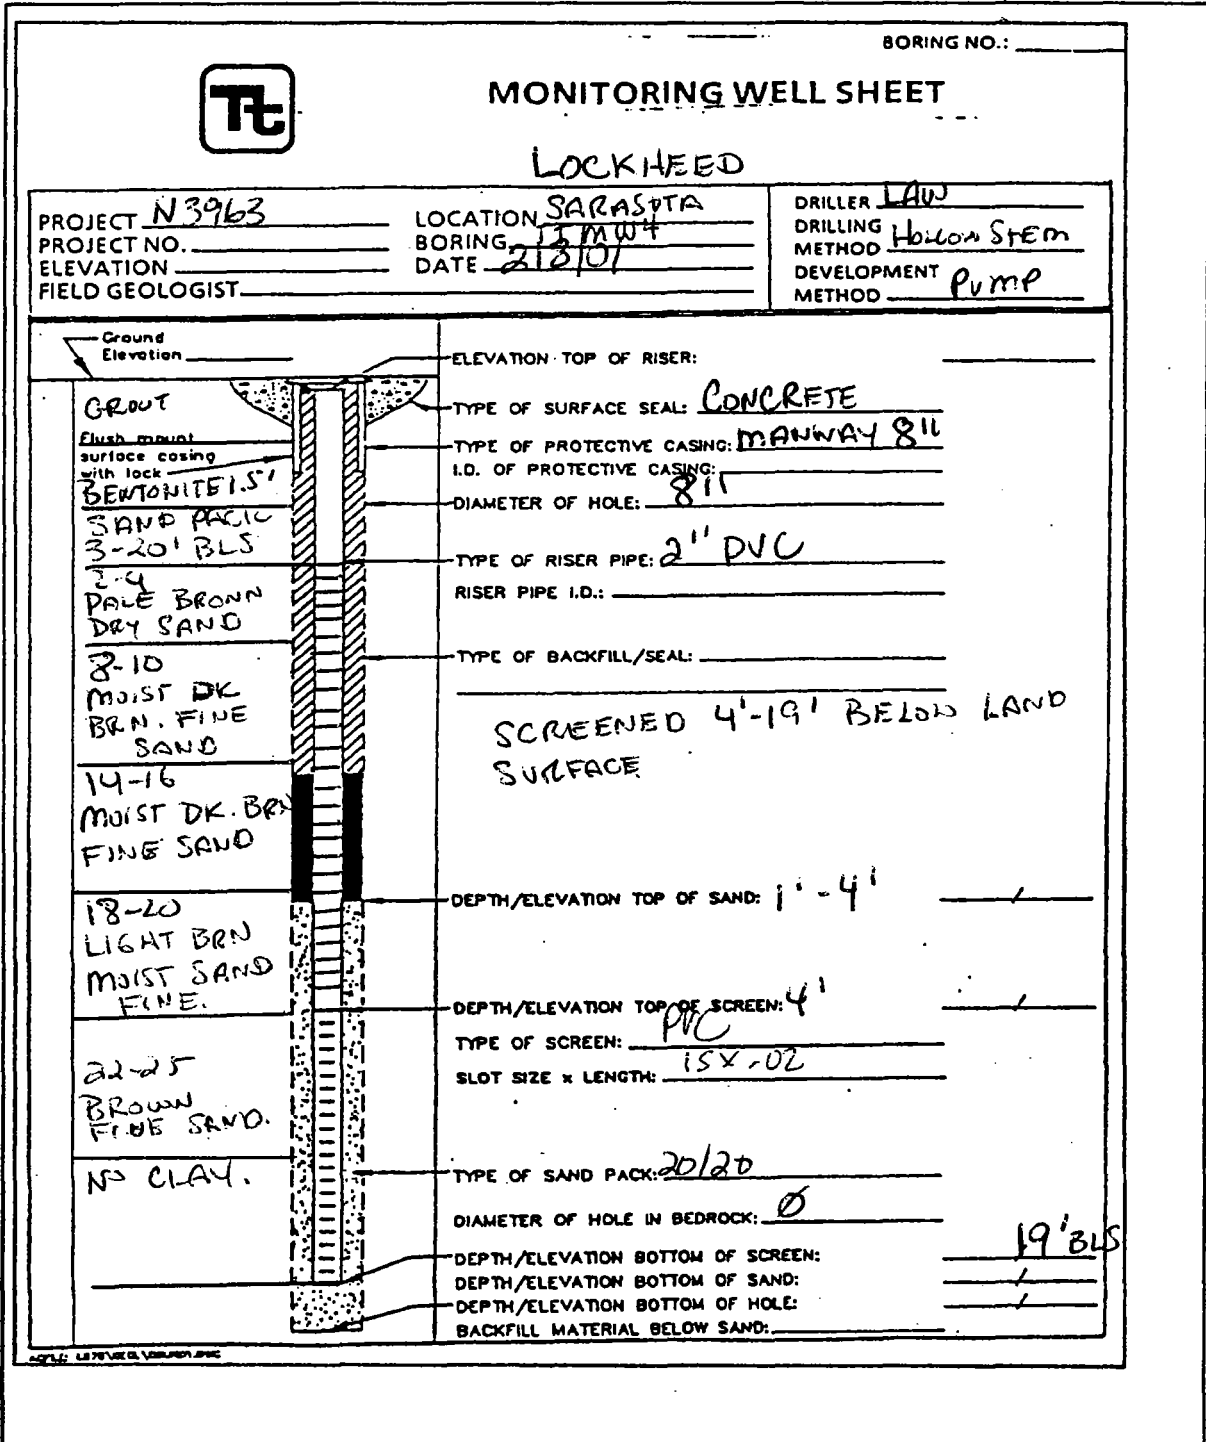 BORING NO.:
Tt
MONITORING WELL SHEET
LOCKHEED
PROJECT N3963
PROJECT NO.
ELEVATION
FIELD GEOLOGIST
LOCATION SARASOTA
BORING
DATE 2/8/01
DRILLER LAW
DRILLING METHOD HOLLOW STEM
DEVELOPMENT METHOD PUMP
Ground
Elevation
GROUT
Flush mount
surface casing
with lock
BENTONITE 1.5'
SAND PACK
3-20' BLS
2-4
PALE BROWN
DRY SAND
8-10
MOIST DK
BRN. FINE
SAND
14-16
MOIST DK. BRN
FINE SAND
18-20
LIGHT BRN
MOIST SAND
FINE.
22-25
BROWN
FINE SAND.
NO CLAY.
ELEVATION TOP OF RISER:
TYPE OF SURFACE SEAL: CONCRETE
TYPE OF PROTECTIVE CASING: MANWAY 8"
I.D. OF PROTECTIVE CASING:
DIAMETER OF HOLE: 8"
TYPE OF RISER PIPE: 2" PVC
RISER PIPE I.D.:
TYPE OF BACKFILL/SEAL:
SCREENED 4'-19' BELOW LAND
SURFACE
DEPTH/ELEVATION TOP OF SAND: 1'-4' /
DEPTH/ELEVATION TOP OF SCREEN: 4' /
TYPE OF SCREEN: PVC
SLOT SIZE x LENGTH: 15 X .02
TYPE OF SAND PACK: 20/20
DIAMETER OF HOLE IN BEDROCK: Ø
DEPTH/ELEVATION BOTTOM OF SCREEN: 19' BLS
DEPTH/ELEVATION BOTTOM OF SAND: /
DEPTH/ELEVATION BOTTOM OF HOLE: /
BACKFILL MATERIAL BELOW SAND: